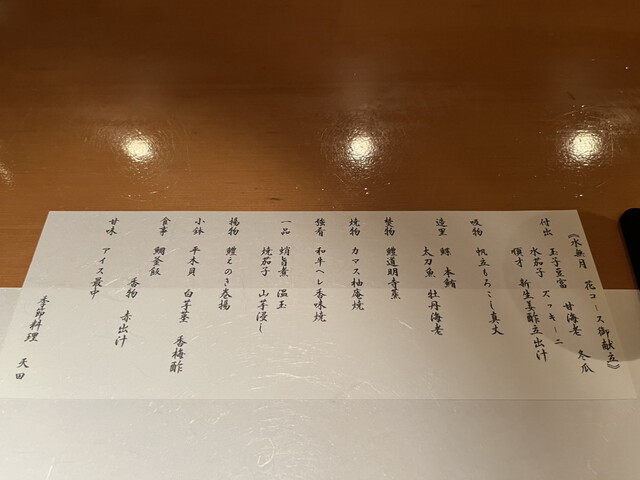 《水無月　花コース御献立》
付出　玉子豆富　甘海老　冬瓜
水茄子　ズッキーニ
順才　新生姜酢立出汁
吸物　帆立もろこし真丈
造里　鰹　本鮪
太刀魚　牡丹海老
焚物　鱧道明寺蒸
焼物　カマス柚庵焼
強肴　和牛ヘレ香味焼
一品　蛸旨煮　温玉
焼茄子　山芋浸し
揚物　鱧えのき巻揚
小鉢　平木貝　白芋茎　香梅酢
食事　鯛釜飯
香物　赤出汁
甘味　アイス最中
季節料理　天田